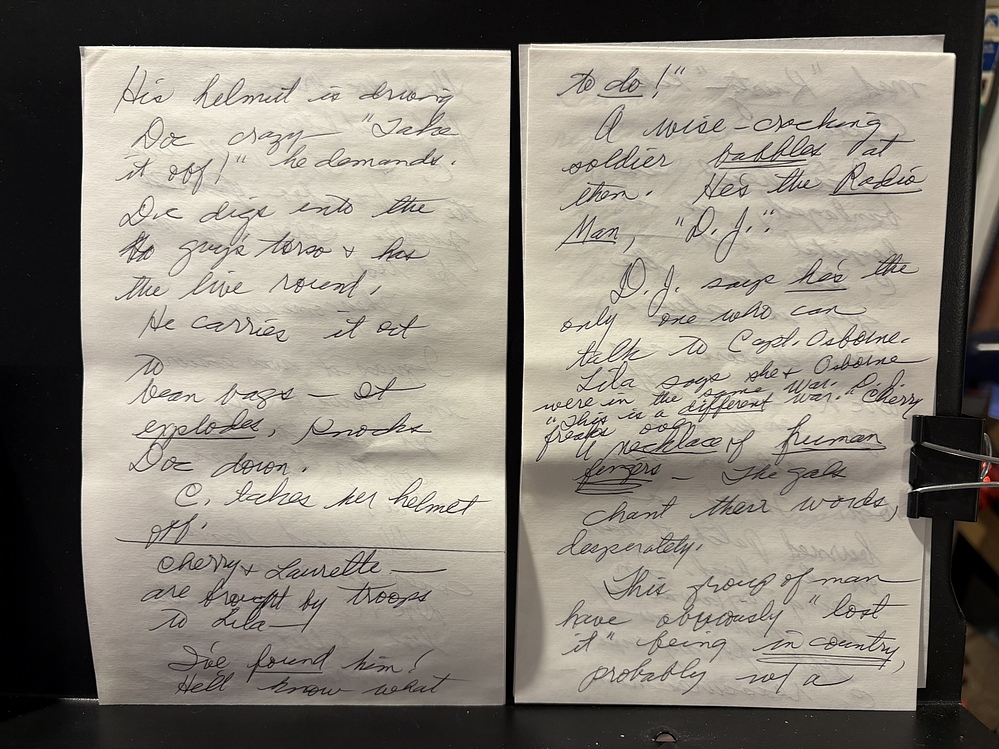 His helmut is driving
Doc crazy — "Take
it off!" he demands.
Doc digs into the
guy's torso & has
the live round,
He carries it out
to
bean bags — It
explodes, knocks
Doc down.
C. takes her helmet
off.
Cherry & Laurette —
are brought by troops
to Lila —
I've found him!
He'll know what
to do!"
A wise-cracking
soldier babbles at
them. He's the Radio
Man, "D.J."
D.J. says he's the
only one who can
talk to Capt. Osborne.
Lila says she & Osborne
were in the same war. D.J.
"This is a different war." Cherry
freaks over
a necklace of human
fingers — The gals
chant their words,
desperately.
This group of man
have obviously "lost
it" being in country,
probably w/ a